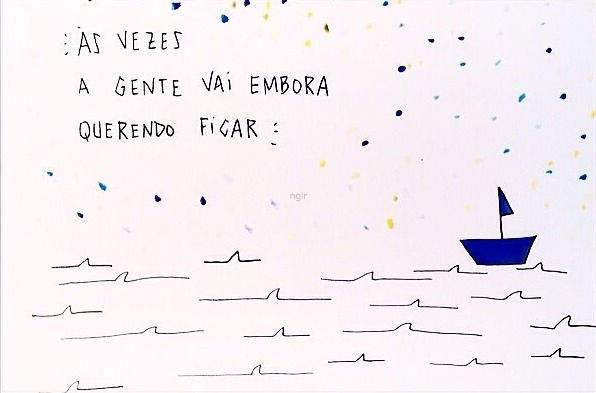 : ÀS VEZES
A GENTE VAI EMBORA
QUERENDO FICAR :
nglr